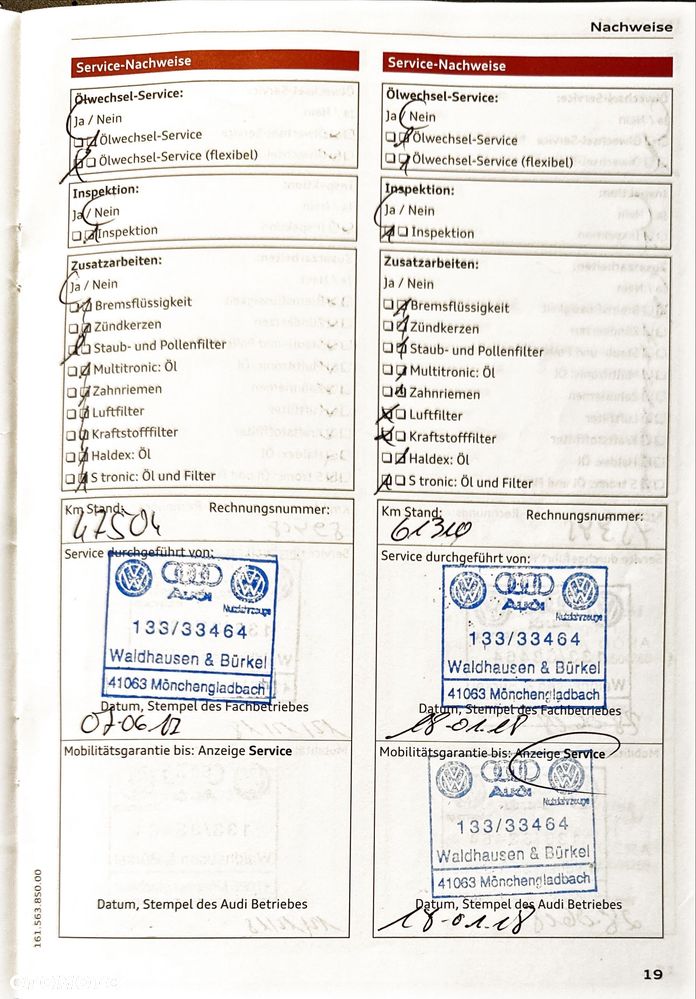 Nachweise
Service-Nachweise
Ölwechsel-Service:
Ja / Nein
Ölwechsel-Service
Ölwechsel-Service (flexibel)
Inspektion:
Ja / Nein
Inspektion
Zusatzarbeiten:
Ja / Nein
Bremsflüssigkeit
Zündkerzen
Staub- und Pollenfilter
Multitronic: Öl
Zahnriemen
Luftfilter
Kraftstofffilter
Haldex: Öl
S tronic: Öl und Filter
Km Stand: Rechnungsnummer:
47504
Service durchgeführt von:
Audi
Nutzfahrzeuge
133/33464
Waldhausen & Bürkel
41063 Mönchengladbach
Datum, Stempel des Fachbetriebes
07-06 17
Mobilitätsgarantie bis: Anzeige Service
Datum, Stempel des Audi Betriebes
161.563.850.00
Service-Nachweise
Ölwechsel-Service:
Ja / Nein
Ölwechsel-Service
Ölwechsel-Service (flexibel)
Inspektion:
Ja / Nein
Inspektion
Zusatzarbeiten:
Ja / Nein
Bremsflüssigkeit
Zündkerzen
Staub- und Pollenfilter
Multitronic: Öl
Zahnriemen
Luftfilter
Kraftstofffilter
Haldex: Öl
S tronic: Öl und Filter
Km Stand: Rechnungsnummer:
61310
Service durchgeführt von:
Audi
Nutzfahrzeuge
133/33464
Waldhausen & Bürkel
41063 Mönchengladbach
Datum, Stempel des Fachbetriebes
18-01.18
Mobilitätsgarantie bis: Anzeige Service
Audi
Nutzfahrzeuge
133/33464
Waldhausen & Bürkel
41063 Mönchengladbach
Datum, Stempel des Audi Betriebes
18-01.18
19